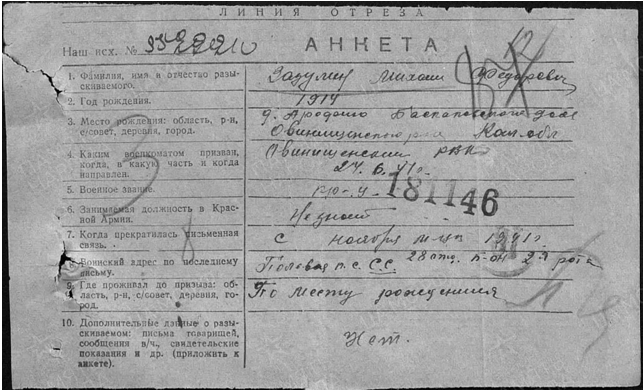 ЛИНИЯ ОТРЕЗА
Наш исх. №
АНКЕТА
1. Фамилия, имя и отчество разы-
скиваемого.
Михаил Федорович
2. Год рождения.
1914
3. Место рождения: область, р-н,
с/совет, деревня, город.
д.
Овинищенского р-на
4. Каким военкоматом призван,
когда, в какую часть и когда
направлен.
Овинищенский РВК
5. Военное звание.
181146
6. Занимаемая должность в Крас-
ной Армии.
Не знает
7. Когда прекратилась письменная
связь.
С ноября м-ца 1941 г.
8. Воинский адрес по последнему
письму.
Полевая п. с. 28 2-я рота
9. Где проживал до призыва: об-
ласть, р-н, с/совет, деревня, го-
род.
По месту рождения
10. Дополнительные данные о разы-
скиваемом: письма товарищей,
сообщения в/ч., свидетельские
показания и др. (приложить к
анкете).
Нет.